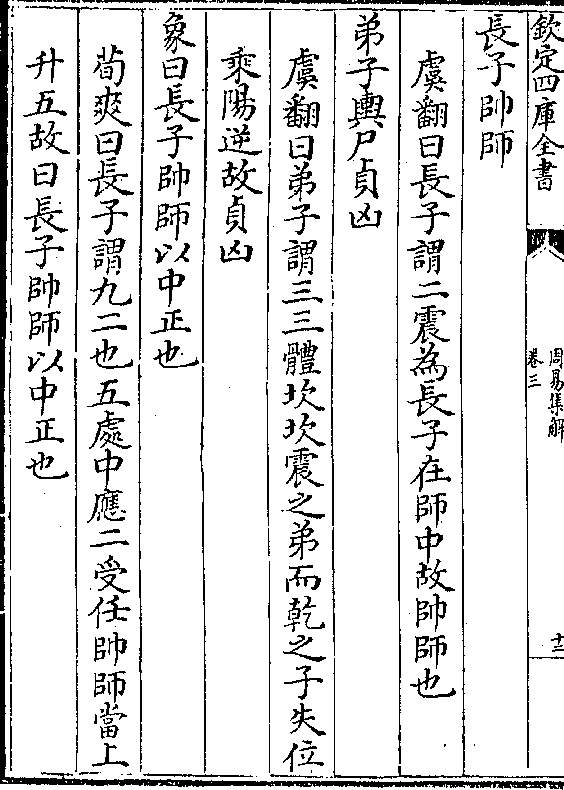 欽定四庫全書
周易集解
卷三
十二
長子帥師
虞翻曰長子謂二震為長子在師中故帥師也
弟子輿尸貞凶
虞翻曰弟子謂三三體坎坎震之弟而乾之子失位
乘陽逆故貞凶
象曰長子帥師以中正也
荀爽曰長子謂九二也五處中應二受任帥師當上
升五故曰長子帥師以中正也